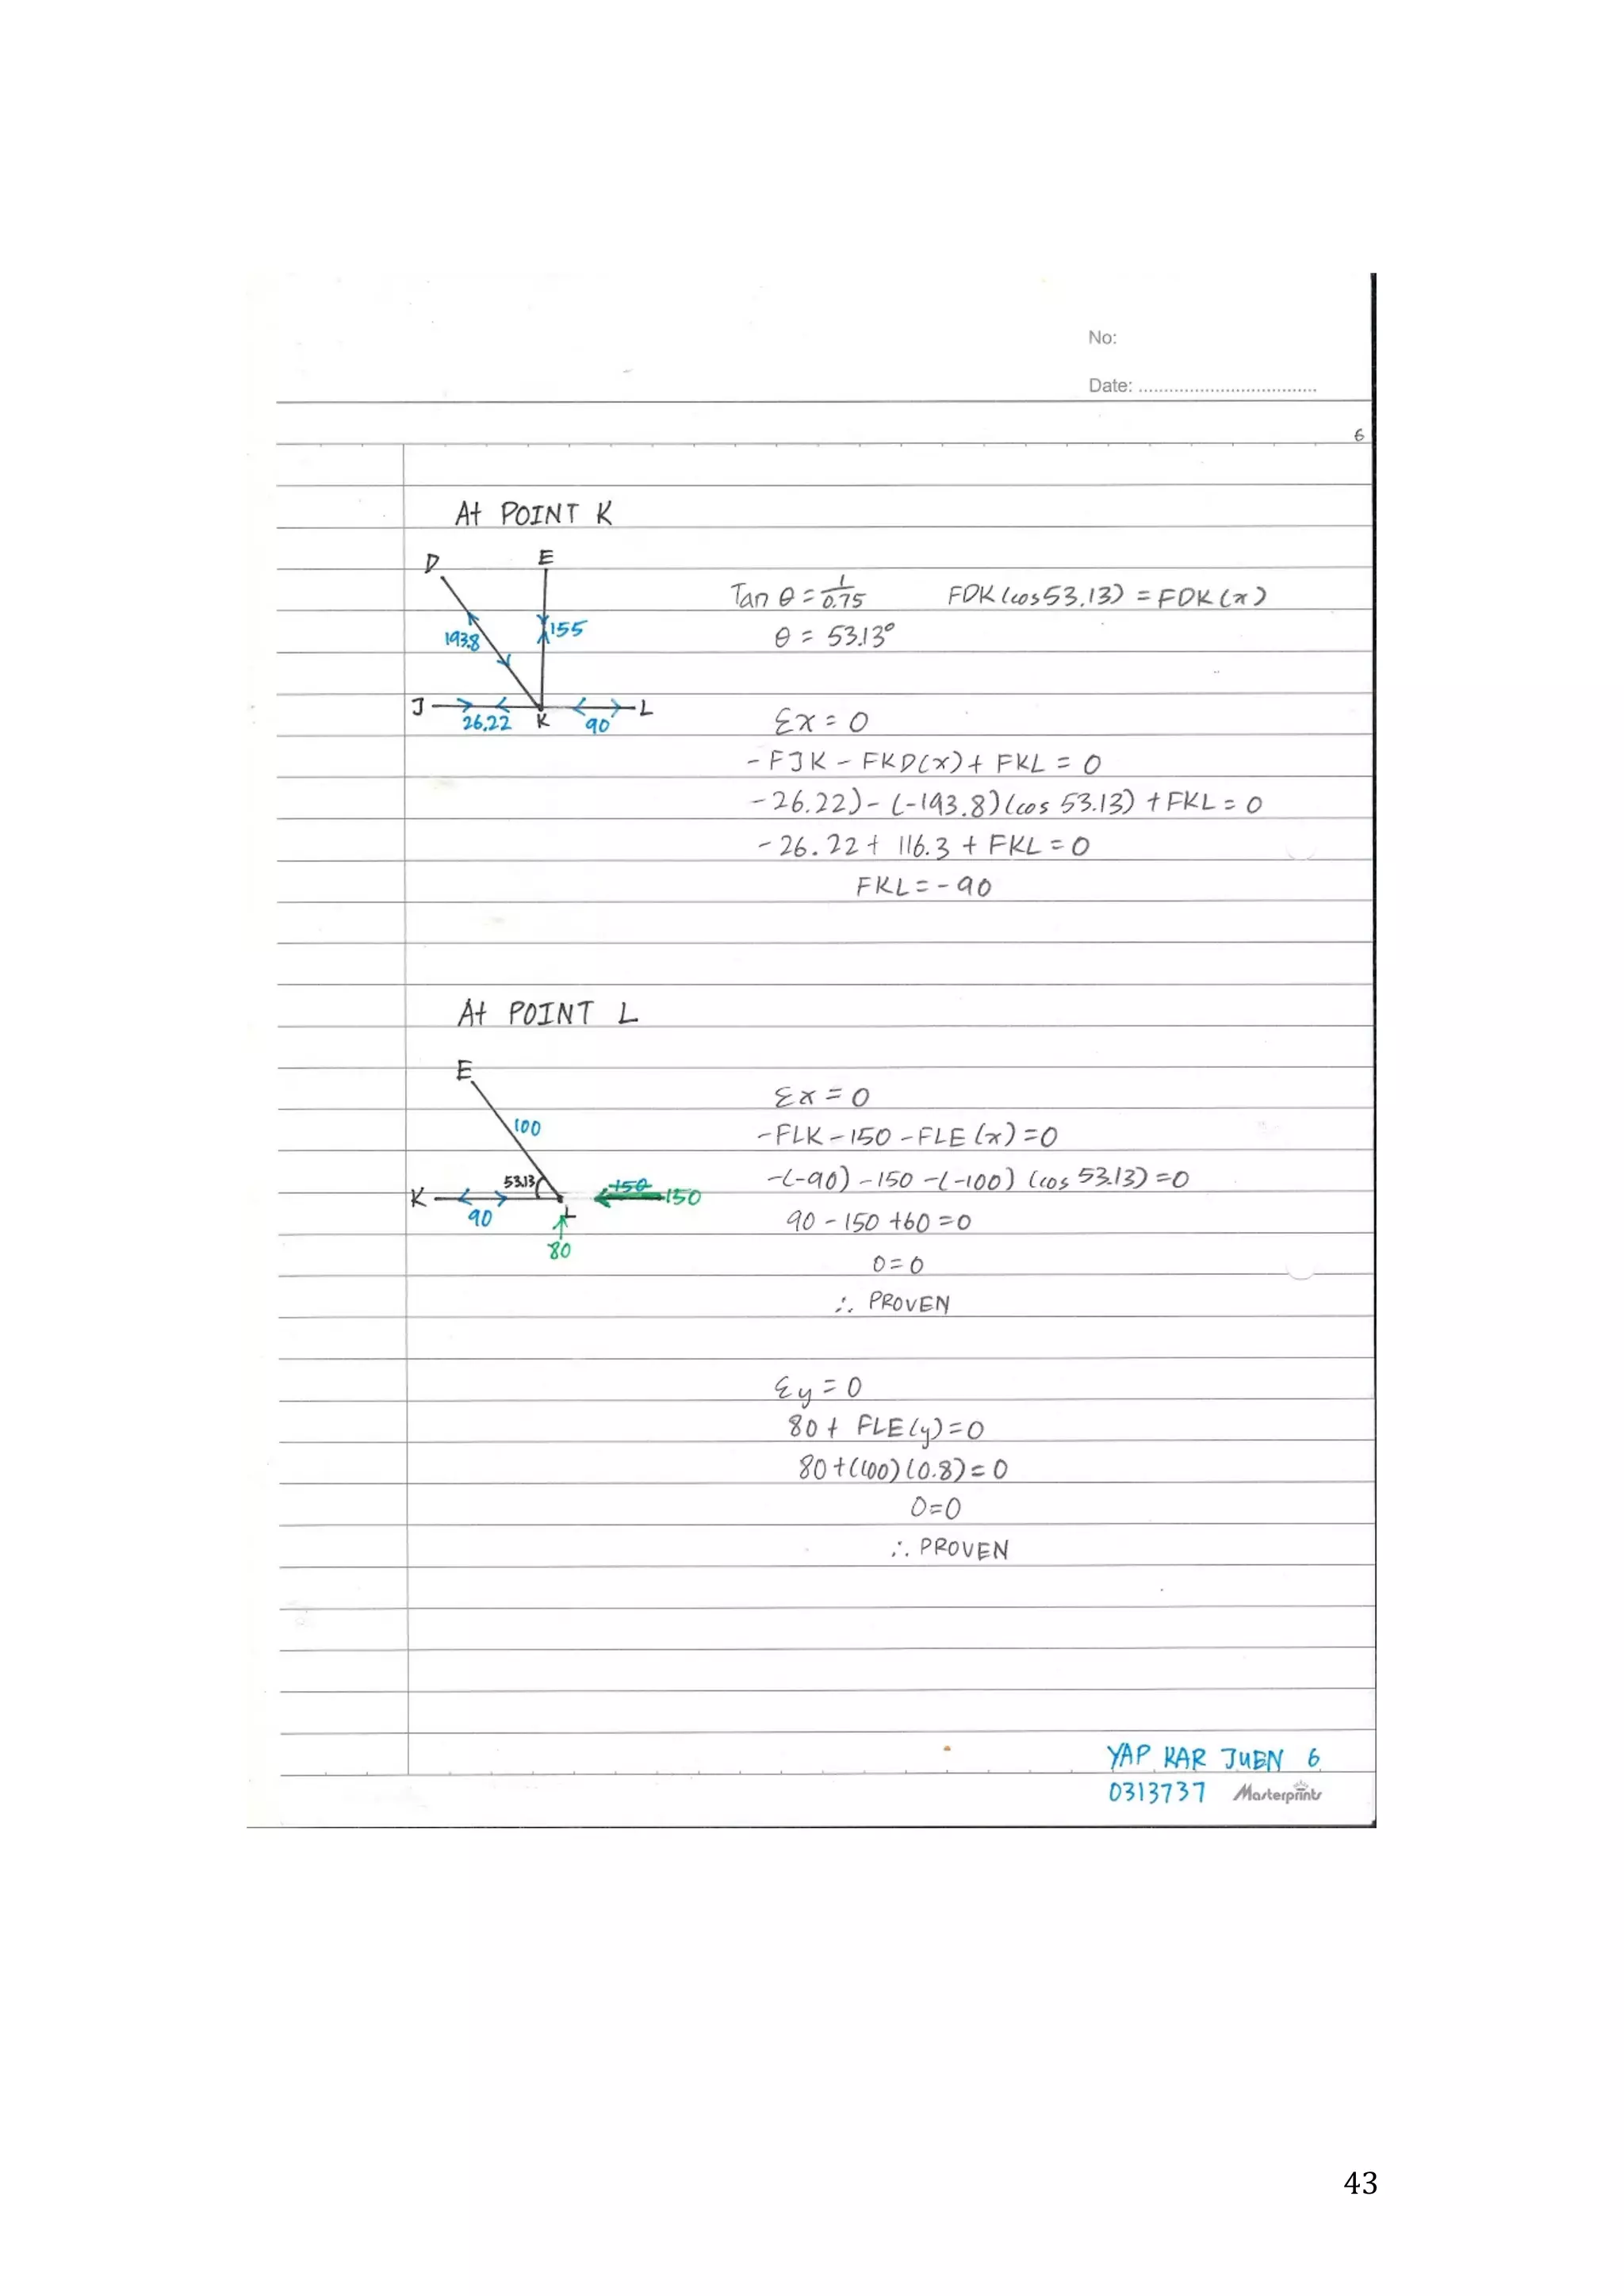 No:
Date: ..................................
6
At POINT K
D E
193.8 155
J 26.22 K 90 L
Tan θ = 1/0.75 FDK (cos53.13) = FDK (x)
θ = 53.13°
Σx = 0
- FJK - FKD(x) + FKL = 0
- 26.22) - (-193.8)(cos 53.13) + FKL = 0
- 26.22 + 116.3 + FKL = 0
FKL = - 90
At POINT L
E
100
53.13
K 90 L 150 150
80
Σx = 0
-FLK - 150 - FLE (x) = 0
-(-90) - 150 -(-100) (cos 53.13) = 0
90 - 150 + 60 = 0
0 = 0
∴ PROVEN
Σy = 0
80 + FLE(y) = 0
80 + (100)(0.8) = 0
0 = 0
∴ PROVEN
YAP KAR JUEN 6
0313737 Masterprints
43